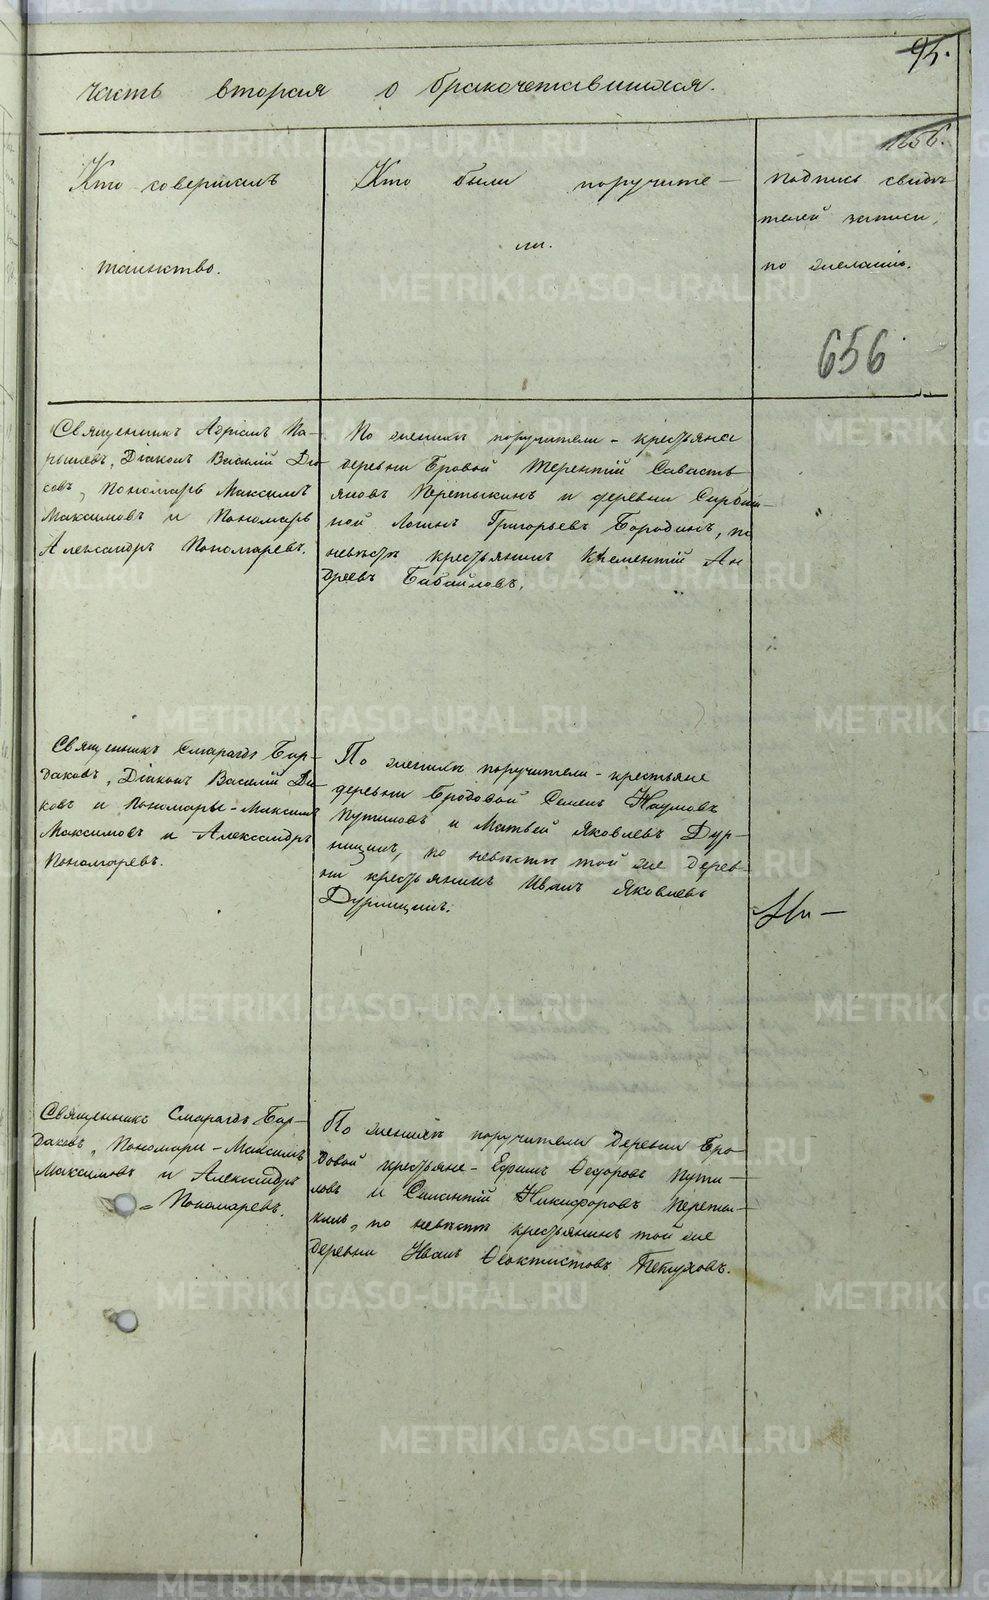 95.
часть вторая о бракочетавшихся.
1656.
Кто совершалъ
таинство.
Кто были поручите-
ли.
подпись свидѣ
телей записи,
по желанію.
656
Священникъ Адріанъ Па-
рышевъ, Діаконъ Василій Ди-
ковъ, Пономарь Максимъ
Максимовъ и Пономарь
Александръ Пономаревъ.
По женихѣ поручители - крестьяне
деревни Бровой Терентій Савасть
яновъ Перетыкинъ и деревни
ной Логинъ Григорьевъ Бородинъ, по
невѣстѣ крестьянинъ Клементій Ан
дреевъ Бабайловъ.
Священникъ Смарагдъ Бир-
даковъ, Діаконъ Василій Ди-
ковъ и Пономарье - Максимъ
Максимовъ и Александръ
Пономаревъ.
По женихѣ поручители - крестьяне
деревни Бродовой Семенъ Наумовъ
Путиловъ и Матвей Яковлевъ Дур-
ницинъ, по невѣстѣ той же дерев-
ни крестьянинъ Иванъ Яковлевъ
Дурницинъ.
Священникъ Смарагдъ Бир-
даковъ, Пономари - Максимъ
Максимовъ и Александръ
= Пономаревъ.
По женихѣ поручители деревни Бро-
довой крестьяне - Ефимъ Ѳедоровъ Пути-
ловъ и Силантій Никифоровъ Перети-
кинъ, по невѣстѣ крестьянинъ той же
деревни Иванъ Ѳеоктистовъ Пѣтуховъ.
METRIKI.GASO-URAL.RU